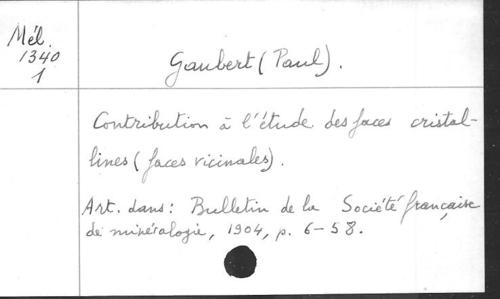 Mél.
1340
1
Gaubert (Paul).
Contribution à l'étude des faces cristal-
lines (faces vicinales).
Art. dans : Bulletin de la Société française
de minéralogie, 1904, p. 6-58.